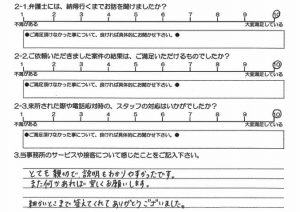 2-1.弁護士には、納得行くまでお話を聞けましたか?
1 2 3 4 5 6 7 8 9 10
不満がある 大変満足している
●ご満足頂けなかった事について、良ければ具体的にお聞かせ下さい。●
2-2.ご依頼いただきました案件の結果は、ご満足いただけるものでしたか?
1 2 3 4 5 6 7 8 9 10
不満がある 大変満足している
●ご満足頂けなかった事について、良ければ具体的にお聞かせ下さい。●
2-3.来所された際や電話応対時の、スタッフの対応はいかがでしたか?
1 2 3 4 5 6 7 8 9 10
不満がある 大変満足している
●ご満足頂けなかった事について、良ければ具体的にお聞かせ下さい。●
3.当事務所のサービスや接客について感じたことをご記入下さい。
とても親切で、説明もわかりやすかったです。
また何かあれば宜しくお願いします。
細かいとこまで答えてくれてありがとうございました。